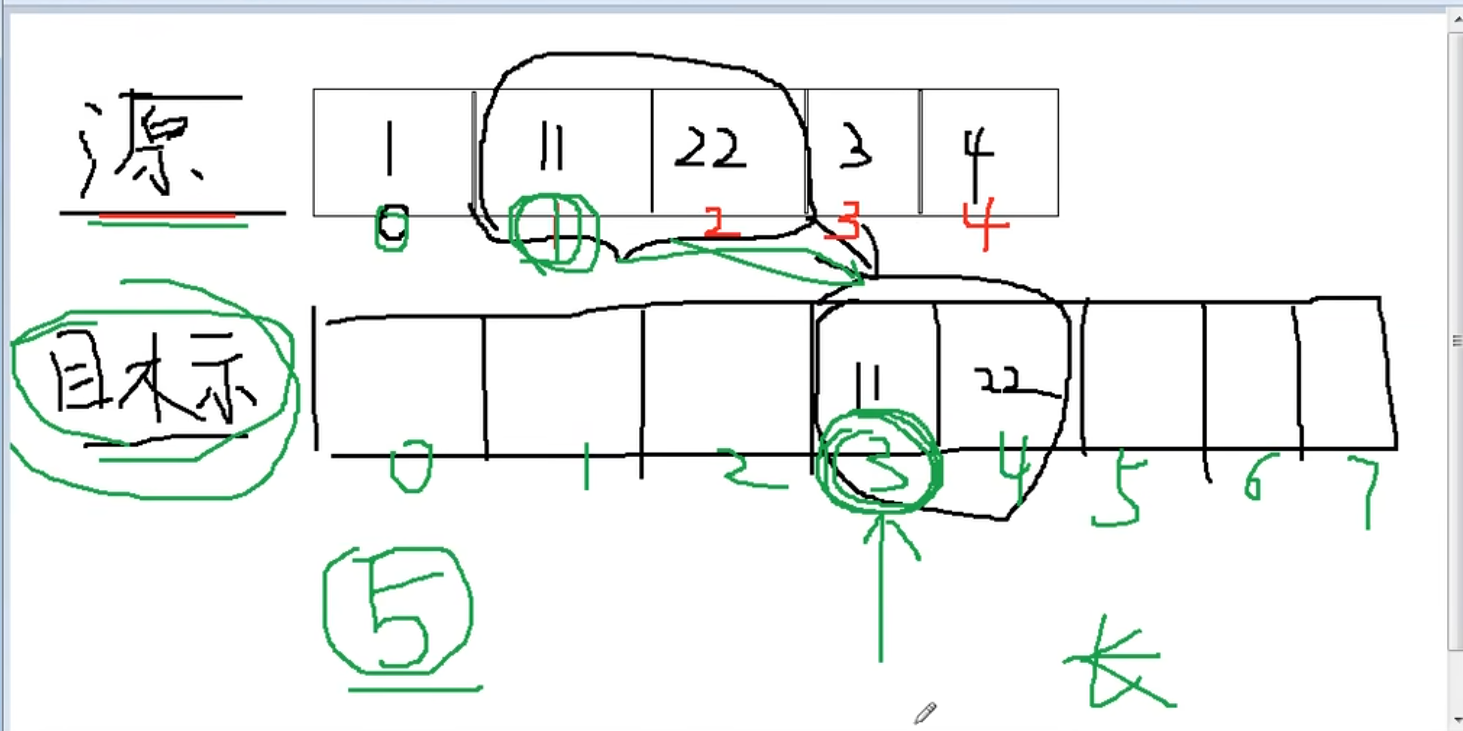 源 1 11 22 3 4
0 1 2 3 4
目标 11 22
0 1 2 3 4 5 6 7
5
长